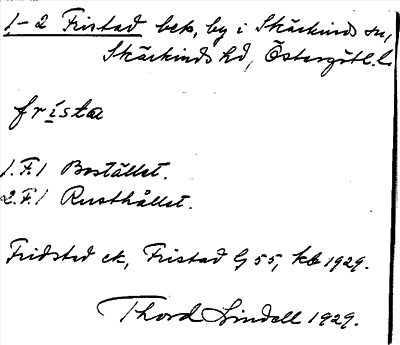 1-2 Fristad bek, by i Skärkinds sn,
Skärkinds hd, Östergötl. l.
frista
1. F. 1 Bostället.
2. F. 1 Rusthållet.
Fridsted ek, Fristad G 55, kb 1929.
Thord Lindell 1929.